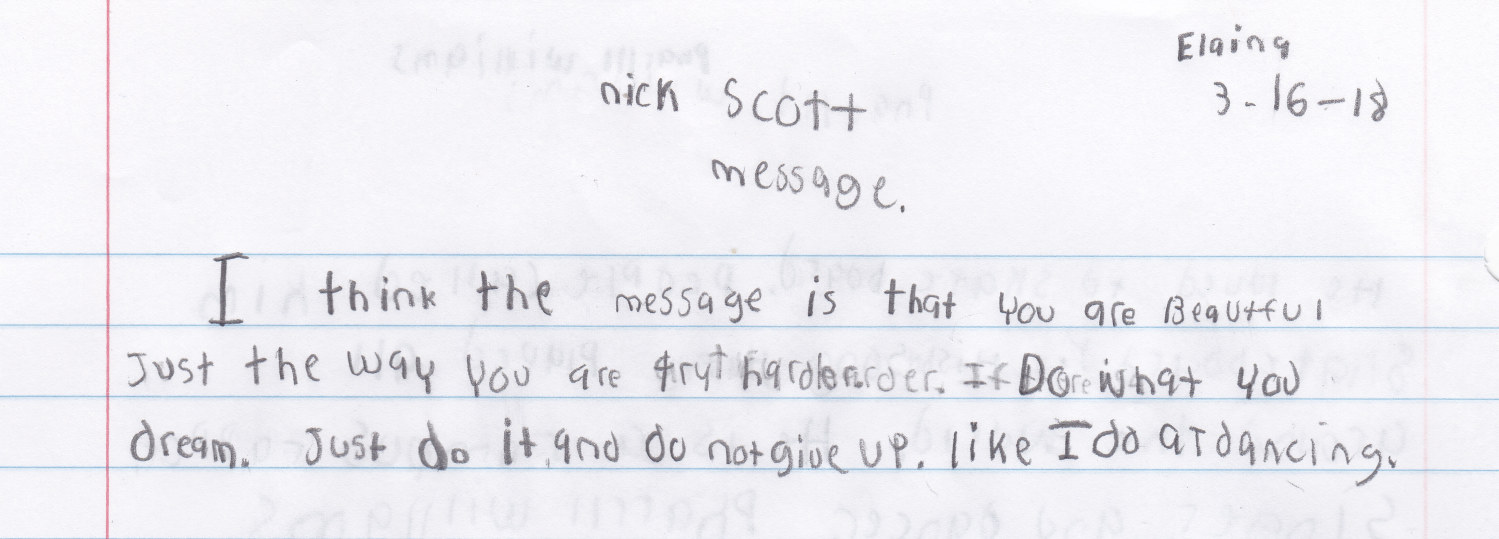 Elaina
3-16-18
nick Scott
message.
I think the message is that you are Beautful
Just the way you are try harder. Do what you
dream. Just do it, and do not give up. like I do at dancing.